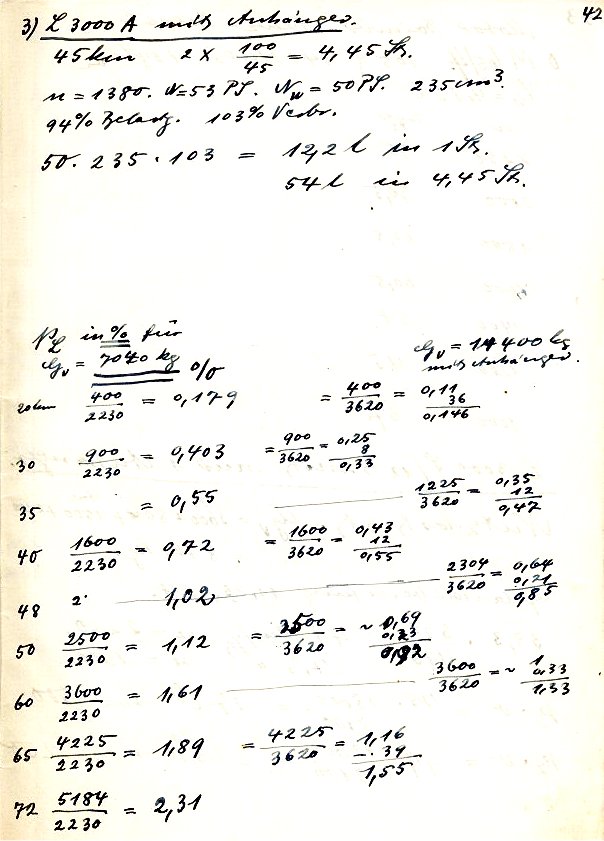 42
3) L 3000 A mit Anhänger.
45 km 2 × 100/45 = 4,45 St.
n = 1380. N = 53 PS. Nw = 50 PS. 235 cm³.
94% Belast. 103% Verbr.
50 · 235 · 103 = 12,2 l in 1 St.
54 l in 4,45 St.
pL in % für
Gv = 7040 kg
Gv = 14400 kg
mit Anhänger.
%
20 km 400/2230 = 0,179 = 400/3620 = 0,11
36
0,146
30 900/2230 = 0,403 = 900/3620 = 0,25
8
0,33
35 = 0,55 1225/3620 = 0,35
12
0,47
40 1600/2230 = 0,72 = 1600/3620 = 0,43
12
0,55
48 2· 1,02 2304/3620 = 0,64
0,21
0,85
50 2500/2230 = 1,12 = 2500/3620 = ~ 0,69
0,23
0,92
60 3600/2230 = 1,61 3600/3620 = ~ 1
0,33
1,33
65 4225/2230 = 1,89 = 4225/3620 = 1,16
39
1,55
72 5184/2230 = 2,31